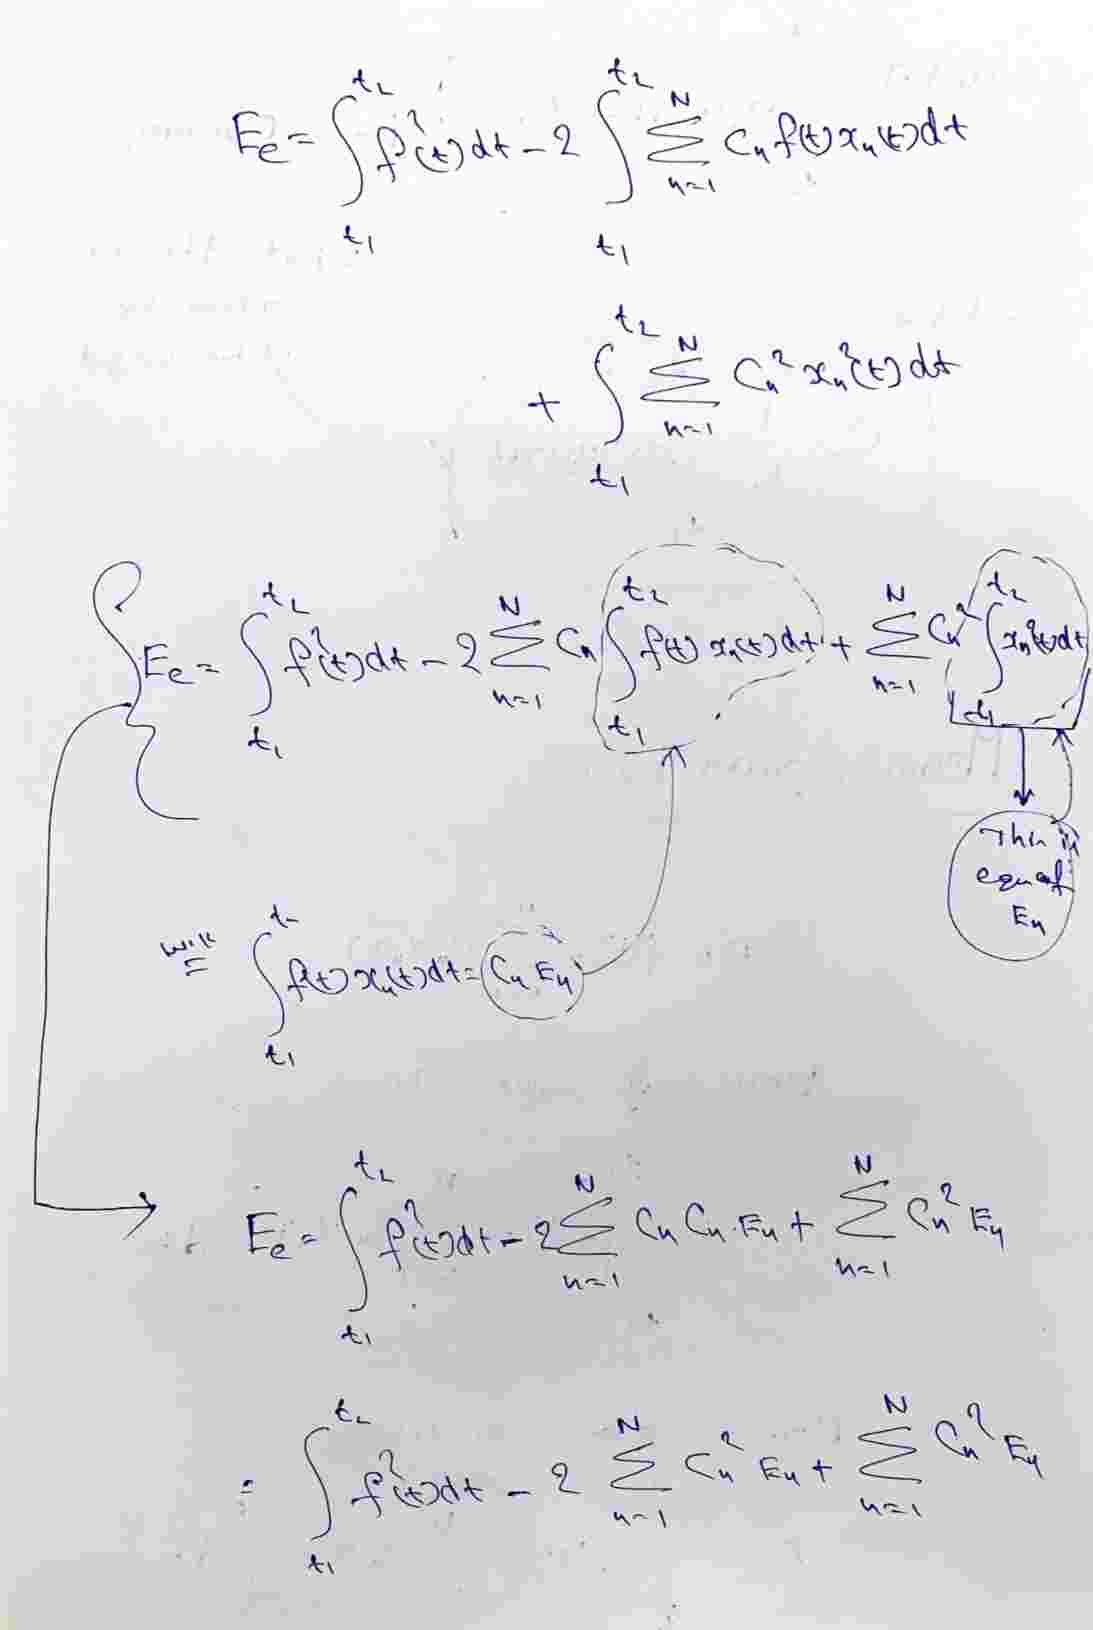 E_e = ∫_{t_1}^{t_2} f²(t) dt - 2 ∫_{t_1}^{t_2} Σ_{n=1}^{N} C_n f(t) x_n(t) dt
+ ∫_{t_1}^{t_2} Σ_{n=1}^{N} C_n² x_n²(t) dt
E_e = ∫_{t_1}^{t_2} f²(t) dt - 2 Σ_{n=1}^{N} C_n ∫_{t_1}^{t_2} f(t) x_n(t) dt + Σ_{n=1}^{N} C_n² ∫_{t_1}^{t_2} x_n²(t) dt
This is
equal
E_n
∫_{t_1}^{t_2} f(t) x_n(t) dt = C_n E_n
E_e = ∫_{t_1}^{t_2} f²(t) dt - 2 Σ_{n=1}^{N} C_n C_n · E_n + Σ_{n=1}^{N} C_n² E_n
= ∫_{t_1}^{t_2} f²(t) dt - 2 Σ_{n=1}^{N} C_n² E_n + Σ_{n=1}^{N} C_n² E_n